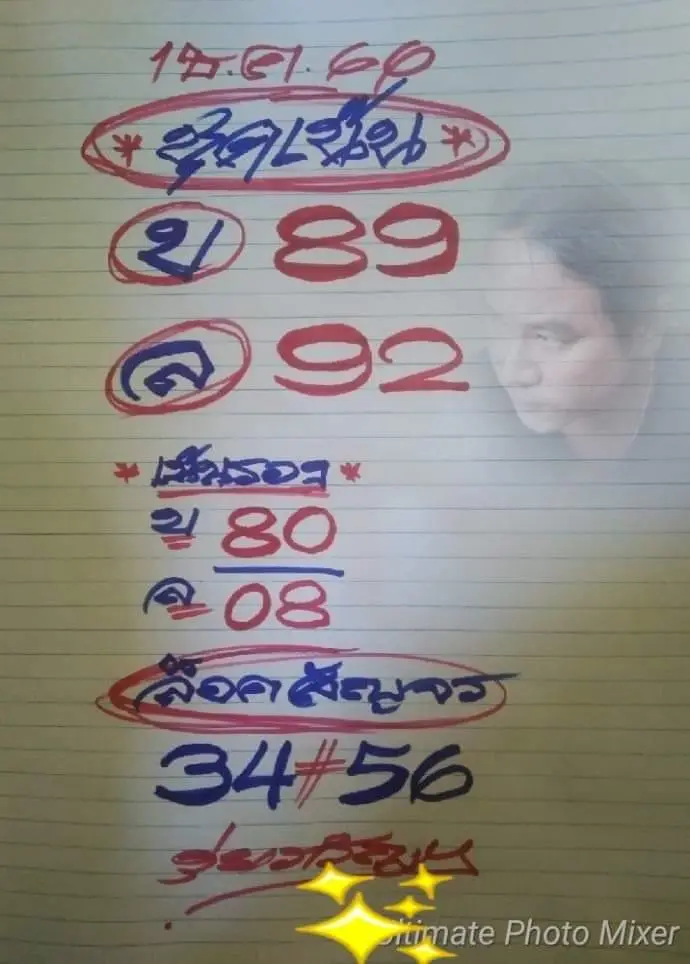 1 ธ.ค. 66
* ชุดเน้น *
บ 89
ล 92
* เน้นรอง *
บ 80
ล 08
ล็อคสัญจร
34#56
Ultimate Photo Mixer